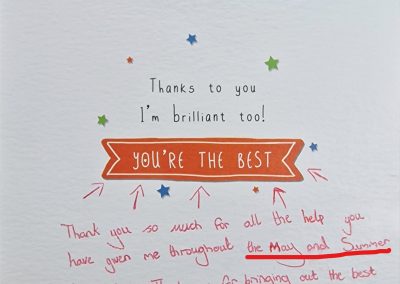 Thanks to you
I'm brilliant too!
YOU'RE THE BEST
Thank you so much for all the help you
have given me throughout the May and Summer
bringing out the best